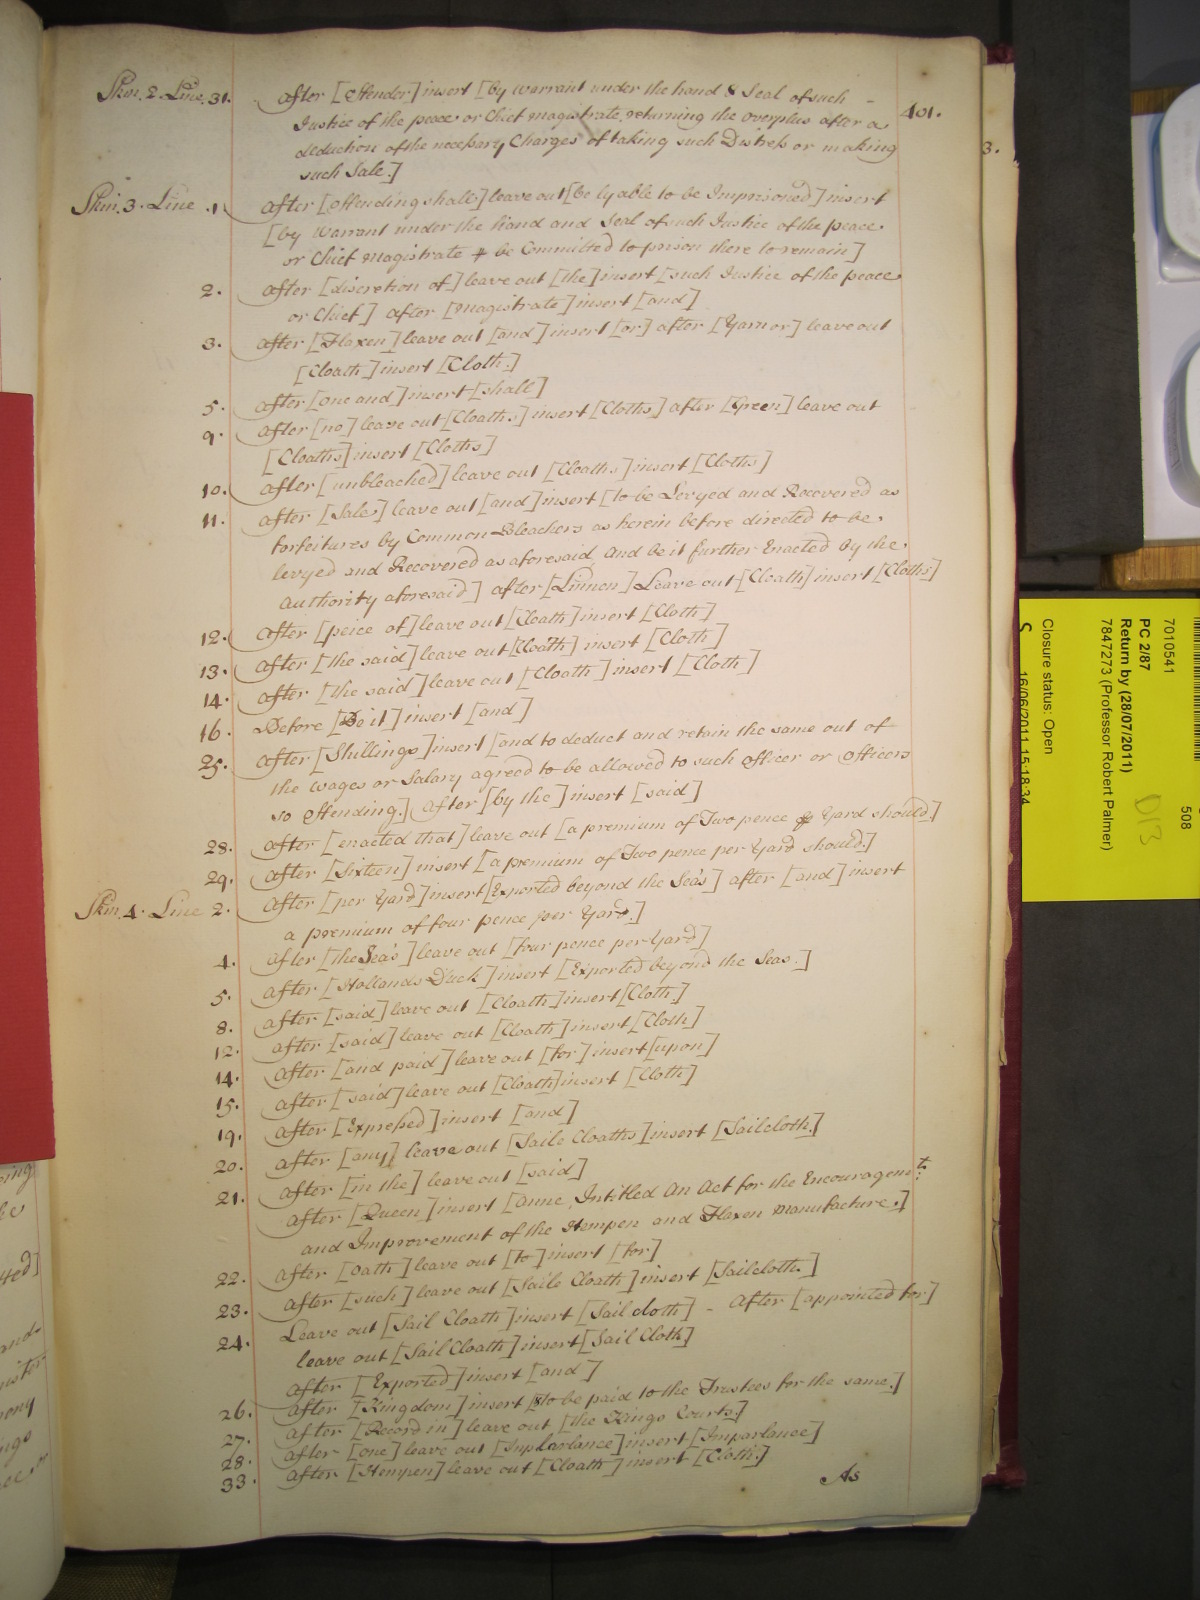 401.
Skin. 2. Line. 31. after [Offender] insert [by warrant under the hand & Seal of such -
Justice of the peace or Chief magistrate, returning the overplus after a
deduction of the necessary Charges of taking such Distress or making
such Sale.]
Skin. 3. Line .1. after [Offending shall] leave out [be lyable to be Imprisoned] insert
[by Warrant under the hand and Seal of such Justice of the peace
or Chief Magistrate be Committed to prison there to remain]
2. after [discretion of] leave out [the] insert [such Justice of the peace
or Chief] after [Magistrate] insert [and]
3. after [Flaxen] leave out [and] insert [or] after [Yarn or] leave out
[Cloath] insert [Cloth.]
5. after [one and] insert [shall]
9. after [no] leave out [Cloaths] insert [Cloths] after [Green] leave out
[Cloaths] insert [Cloths]
10. after [unbleached] leave out [Cloaths] insert [Cloths]
11. after [Sale] leave out [and] insert [to be Levyed and Recovered as
forfeitures by Common Bleachers as herein before directed to be
levyed and Recovered as aforesaid, And be it further Enacted By the
authority aforesaid] after [Linnen] Leave out [Cloath] insert [Cloths]
12. after [peice of] leave out [Cloath] insert [Cloth]
13. after [the said] leave out [Cloath] insert [Cloth]
14. after [the said] leave out [Cloath] insert [Cloth]
16. Before [Do it] insert [and]
25. after [Shillings] insert [and to deduct and retain the same out of
the wages or Salary agreed to be allowed to such officer or officers
so offending.] after [by the] insert [said]
28. after [enacted that] leave out [a premium of Two pence Yard should]
29. after [Sixteen] insert [a premium of Two pence per Yard should.]
Skin. 4. Line 2. after [per Yard] insert [Exported beyond the Sea's] after [and] insert
a premium of four pence per Yard.]
4. after [the Sea's] leave out [four pence per Yard]
5. after [Hollands Duck] insert [Exported beyond the Seas.]
8. after [said] leave out [Cloath] insert [Cloth]
12. after [said] leave out [Cloath] insert [Cloth]
14. after [and paid] leave out [for] insert [upon]
15. after [said] leave out [Cloath] insert [Cloth]
19. after [Expressed] insert [and]
20. after [any] leave out [Saile Cloaths] insert [Sailcloth.]
21. after [in the] leave out [said]
after [Queen] insert [Anne, Intitled An Act for the Encouragemt:
and Improvement of the Hempen and Flaxen Manufacture.]
22. after [oath] leave out [to] insert [for]
23. after [such] leave out [Saile Cloath] insert [Sailcloth.]
24. Leave out [Sail Cloath] insert [Sail cloth] - After [appointed for]
leave out [Sail Cloath] insert [Sail Cloth]
after [Exported] insert [and]
26. after [Kingdom] insert [to be paid to the Trustees for the same.]
27. after [Record in] leave out [the Kings Courts]
28. after [one] leave out [Inplarlance] insert [Imparlance]
33. after [Hempen] leave out [Cloath] insert [Cloth.]
As
3.
7010541
508
PC 2/87
Return by (28/07/2011)
7847273 (Professor Robert Palmer)
D13
Closure status: Open
16/06/2011 15:18:34